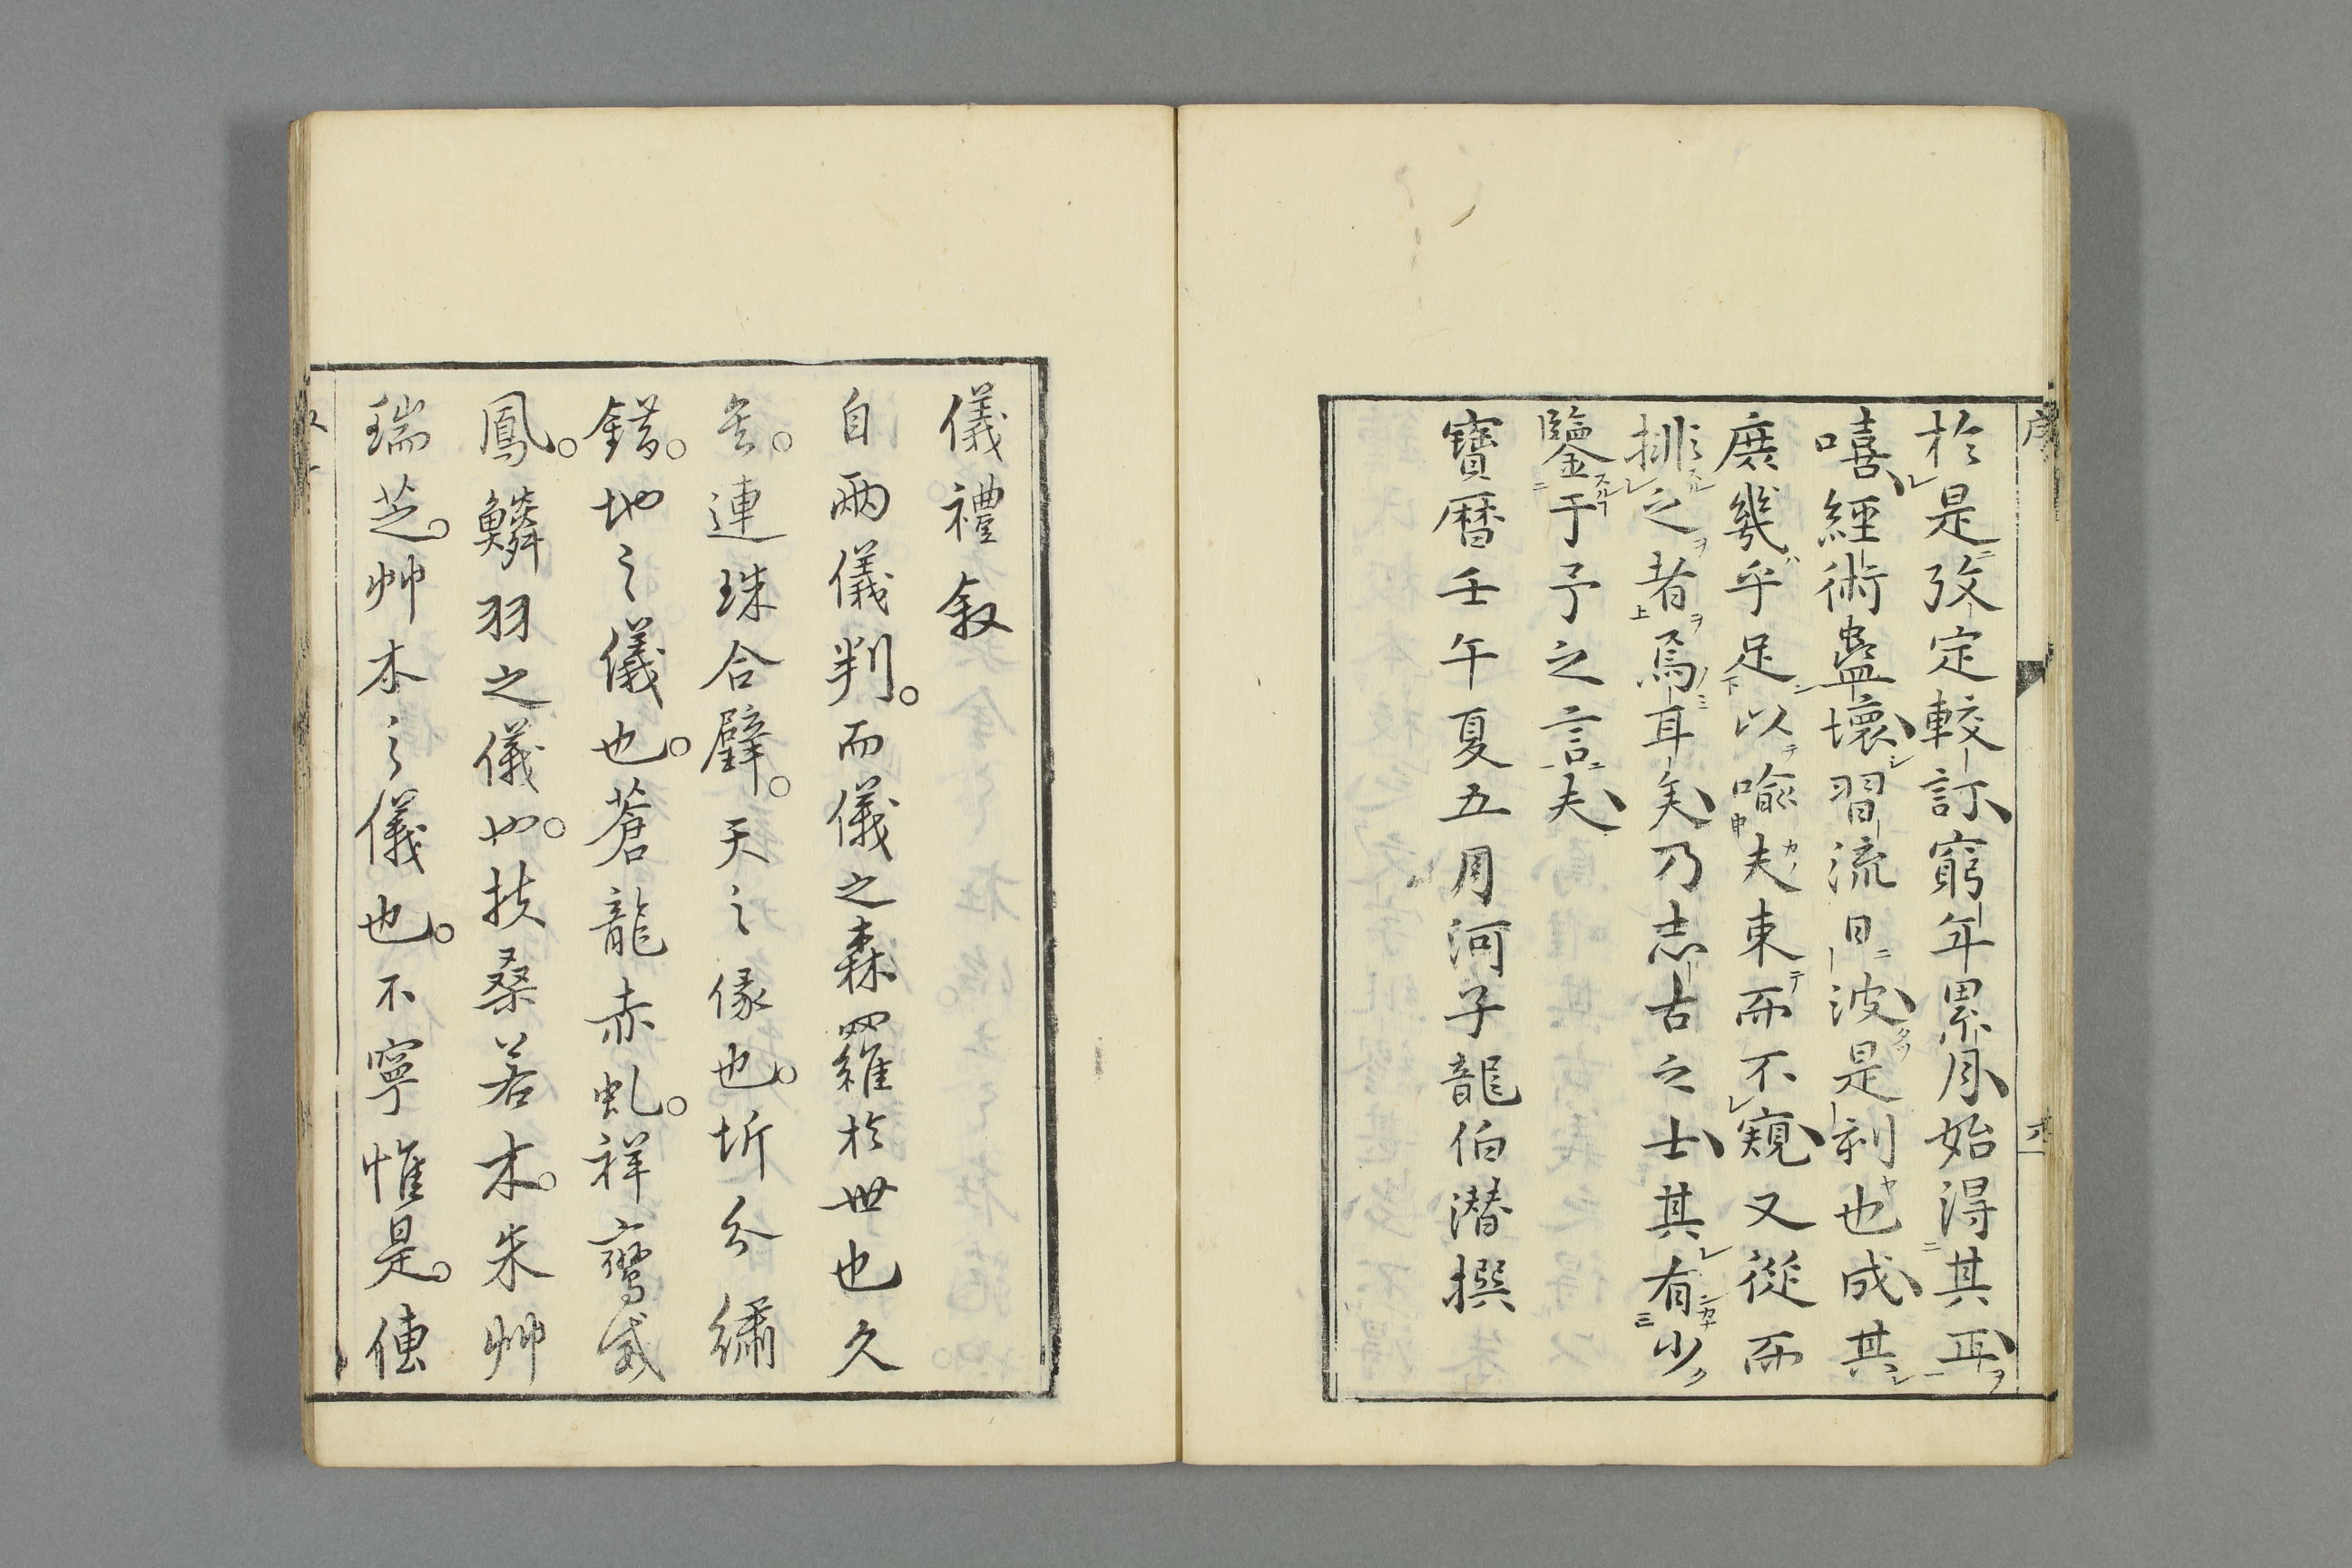 序
於是攷定較訂窮年累月始得其正
嘻經術蠱壞習流日波是刻也成其
庶幾乎足以喩夫東而不窺又從而
排之者焉耳矣乃志古之士其有少
鑒于予之言夫
寶曆壬午夏五月河子龍伯潜撰
儀禮叙
自兩儀判。而儀之森羅於世也久
矣。連珠合璧。天之儀也。圻分繡
錯。地之儀也。蒼龍赤虬。祥鸞威
鳳。鱗羽之儀也。扶桑若木。朱艸
瑞芝。艸木之儀也。不寧惟是。